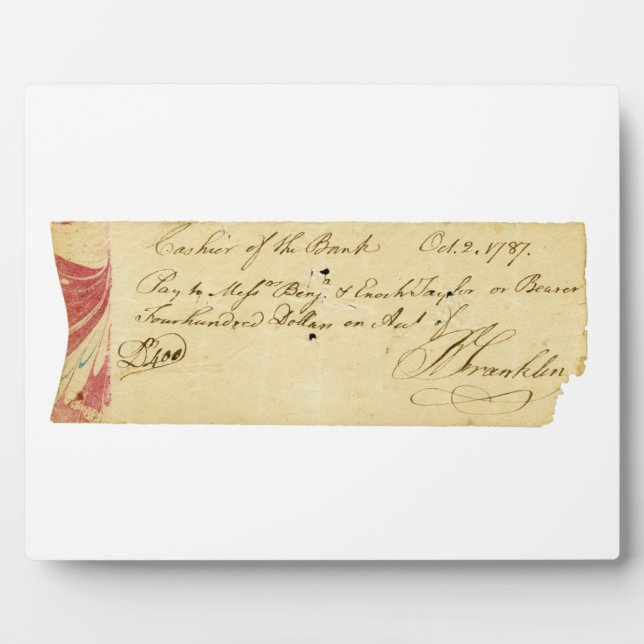 Cashier of the Bank Oct. 2. 1787.
Pay to Messrs. Benja. & Enoch Taylor or Bearer
Fourhundred Dollars on Acct of
Ds 400 B Franklin